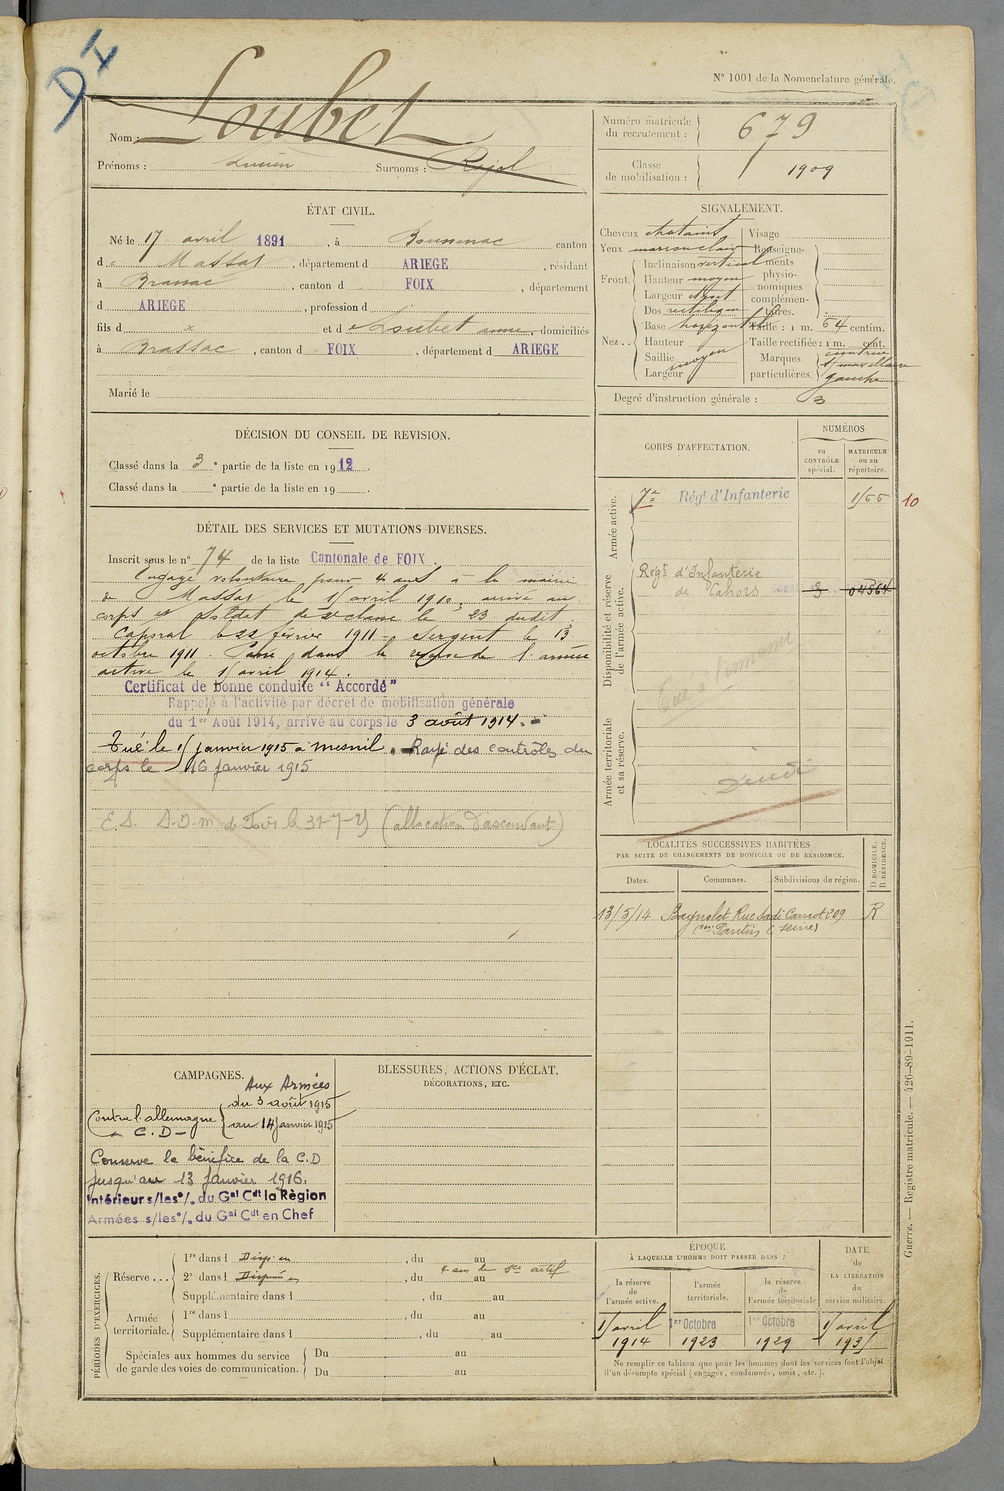 DI
N° 1001 de la Nomenclature générale.
Nom : Loubet
Prénoms : Lucien Surnoms : Rajol
Numéro matricule du recrutement : 679
Classe de mobilisation : 1909
ÉTAT CIVIL.
Né le 17 avril 1891, à Boussenac canton
d e Massat, département d ARIEGE, résidant
à Brassac, canton d FOIX, département
d ARIEGE, profession d
fils d x et d e Loubet anne, domiciliés
à Brassac, canton d FOIX, département d ARIEGE
Marié le
SIGNALEMENT.
Cheveux chatains
Yeux marron clair
Front. Inclinaison vertical
Hauteur moyen
Largeur
Nez Dos rectiligne
Base horizontal
Hauteur
Saillie moyen
Largeur
Visage
Renseignements physionomiques complémentaires.
Taille : 1 m. 64 centim.
Taille rectifiée : 1 m. cent.
Marques particulières. cicatrice
s/ maxillaire
gauche
Degré d'instruction générale : 3
DÉCISION DU CONSEIL DE REVISION.
Classé dans la 3e partie de la liste en 1912.
Classé dans la e partie de la liste en 19 .
DÉTAIL DES SERVICES ET MUTATIONS DIVERSES.
Inscrit sous le n° 74 de la liste Cantonale de FOIX.
Engagé volontaire pour 4 ans à la mairie
de Massat le 15 avril 1910, arrivé au
corps et soldat de 2e classe le 23 dudit.
Caporal le 22 février 1911. Sergent le 13
octobre 1911. Passé dans la réserve de l'armée
active le 15 avril 1914.
Certificat de bonne conduite "Accordé"
Rappelé à l'activité par décret de mobilisation générale
du 1er Août 1914, arrivé au corps le 3 août 1914.
Tué le 15 janvier 1915 à Mesnil. Rayé des contrôles du
corps le 16 janvier 1915
E.S. S.D.M. de Foix le 31-7-25 (allocation d'ascendant)
CORPS D'AFFECTATION.
NUMÉROS
au CONTRÔLE spécial.
MATRICULE ou au répertoire.
Armée active.
7e Régt d'Infanterie 1/55 10
Disponibilité et réserve de l'armée active.
Régt d'Infanterie
de Cahors 3 04364
Tué à l'ennemi
Armée territoriale et sa réserve.
LOCALITÉS SUCCESSIVES HABITÉES
PAR SUITE DE CHANGEMENTS DE DOMICILE OU DE RÉSIDENCE.
Dates. Communes. Subdivisions de région. D DOMICILE. R RÉSIDENCE.
13/5/14 Bagnolet Rue Sadi Carnot 209 R
(con Pantin (Seine)
CAMPAGNES.
Aux Armées
Contre l'allemagne du 3 août 1915
C.D au 14 janvier 1915
Conserve le bénéfice de la C.D
jusqu'au 13 janvier 1916.
Intérieur s/les o/. du Gal Cdt la Région
Armées s/les o/. du Gal Cdt en Chef
BLESSURES, ACTIONS D'ÉCLAT,
DÉCORATIONS, ETC.
PÉRIODES D'EXERCICES.
Réserve... 1re dans l Disp. en, du au
4 ans de sce actif
2e dans l Dispensé en, du au
Supplémentaire dans l, du au
Armée territoriale. 1re dans l, du au
Supplémentaire dans l, du au
Spéciales aux hommes du service
de garde des voies de communication. Du au
Du au
ÉPOQUE
À LAQUELLE L'HOMME DOIT PASSER DANS :
la réserve de l'armée active. l'armée territoriale. la réserve de l'armée territoriale
DATE de LA LIBÉRATION du service militaire.
15 avril 1er Octobre 1er Octobre 15 avril
1914 1923 1929 1935
Ne remplir ce tableau que pour les hommes dont les services font l'objet
d'un décompte spécial (engagés, condamnés, omis, etc.).
Guerre. — Registre matricule. — 426-89-1911.